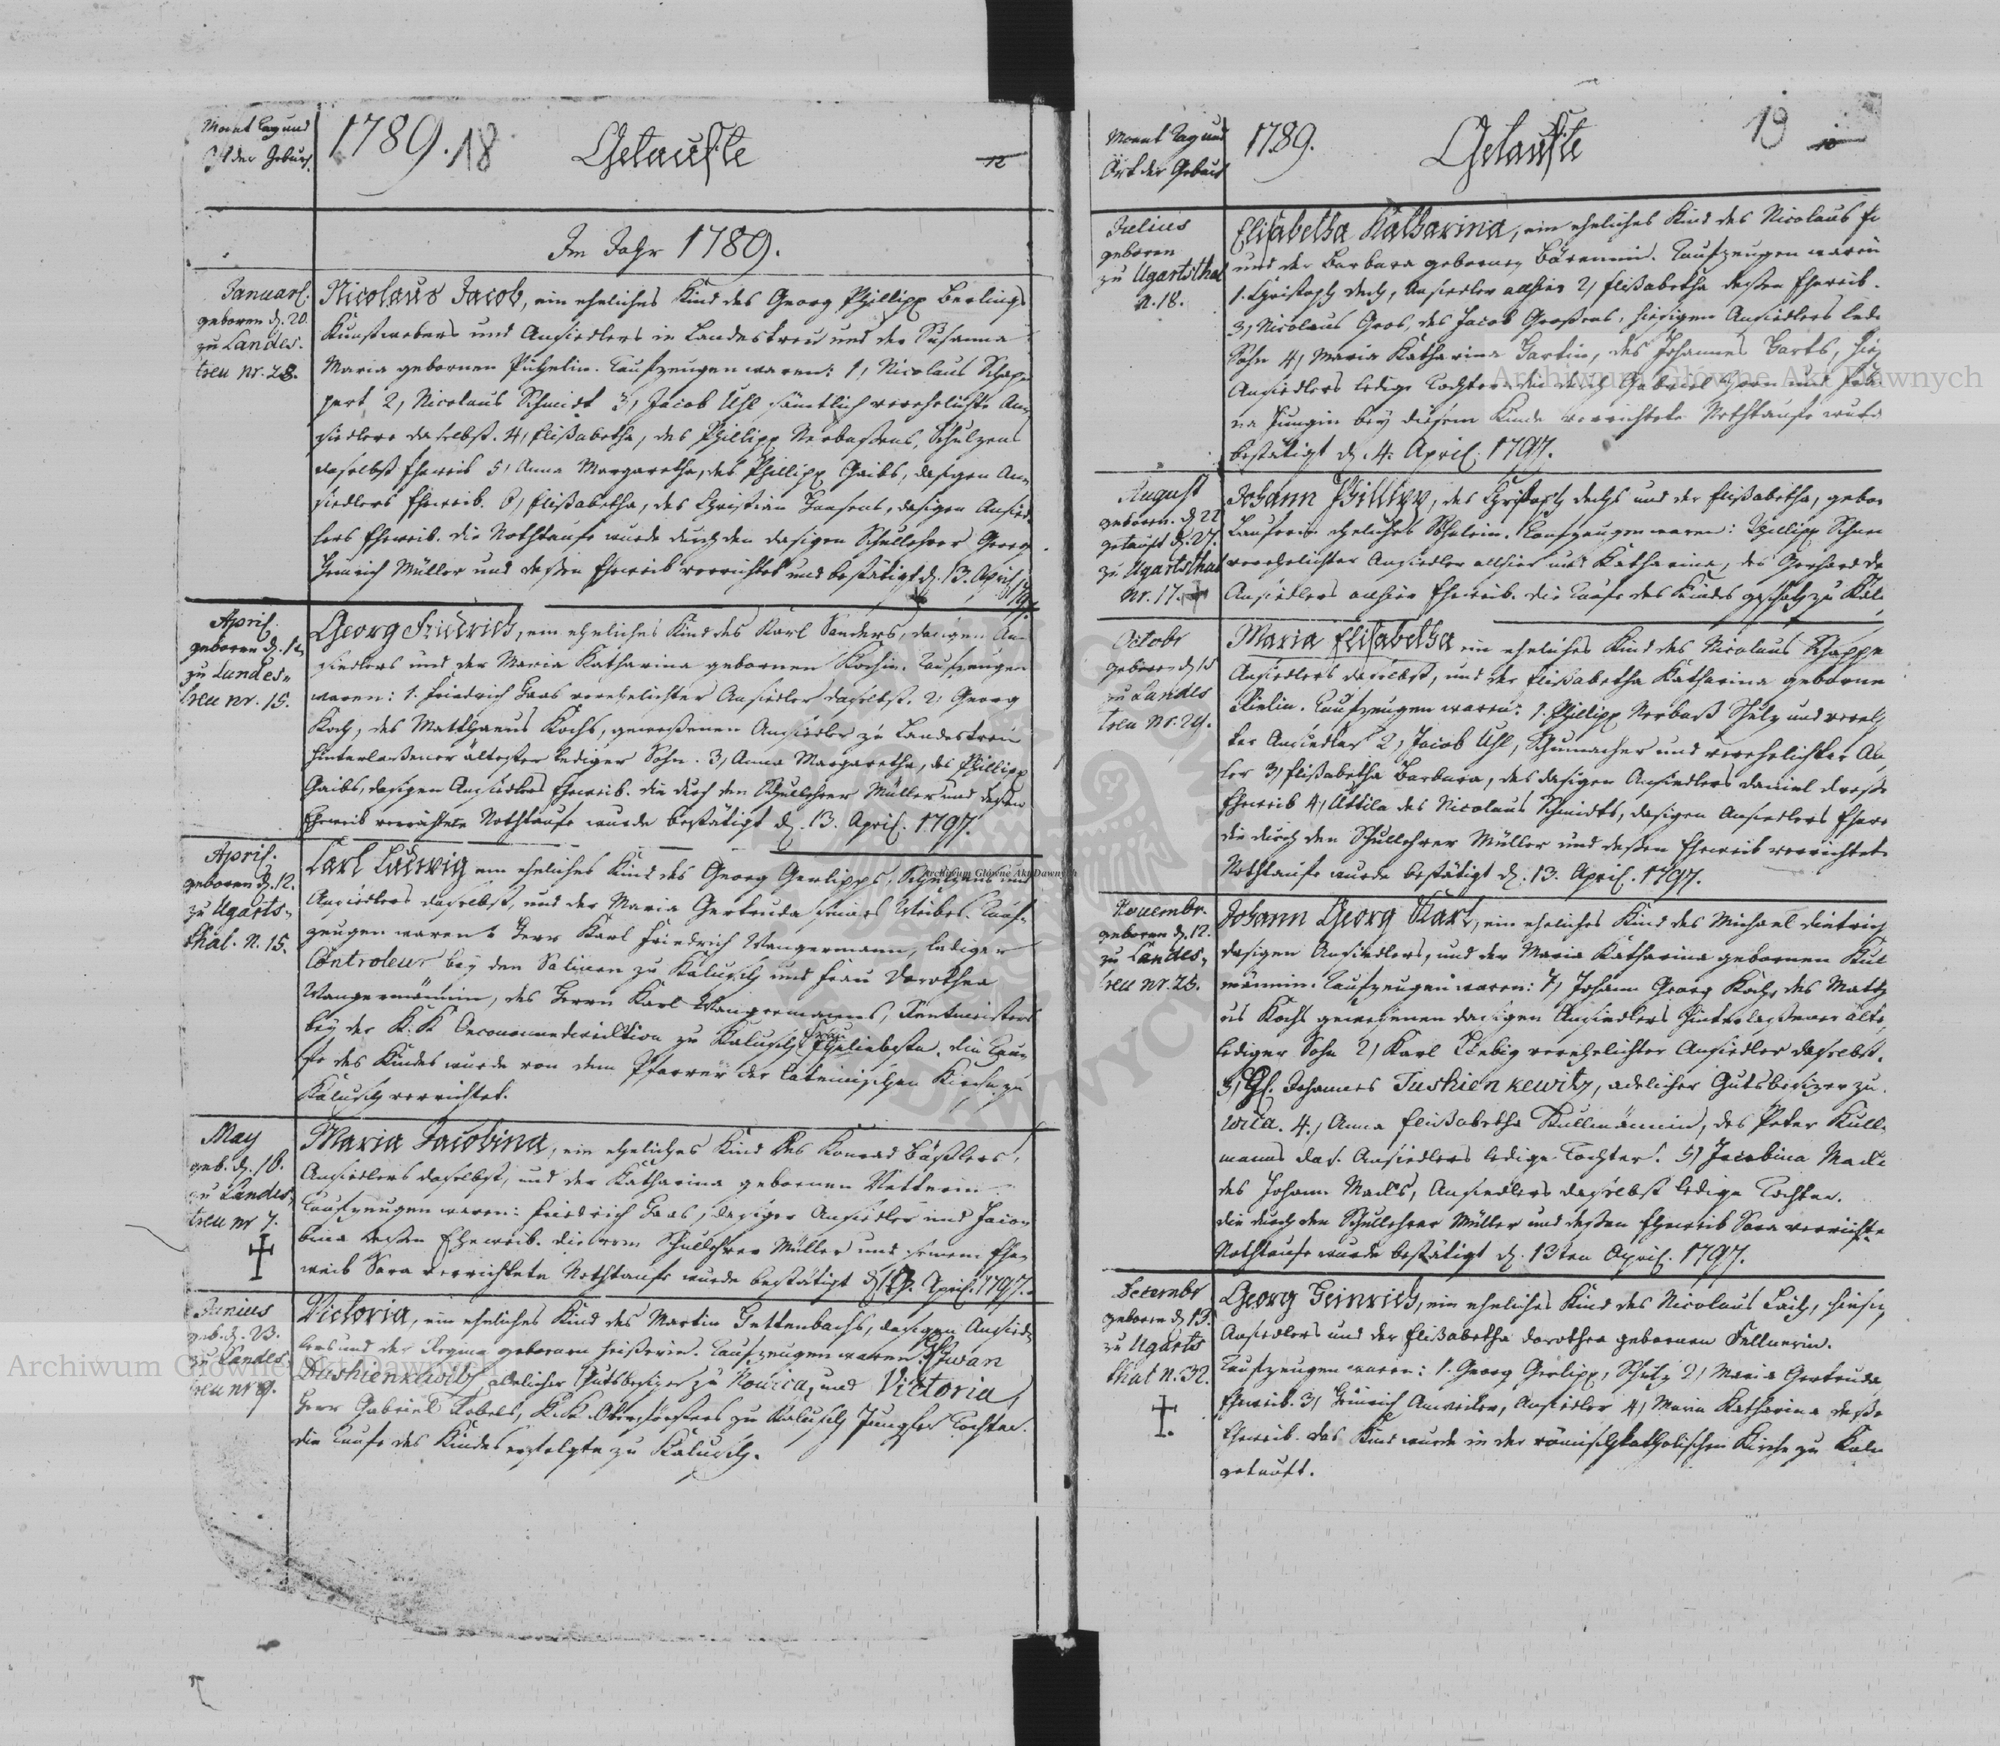 Monat Tag und
Ort der Geburt.
1789. 18 Getaufte 12
Im Jahr 1789.
Januar.
geboren d. 20.
zu Landes-
treu nr. 28.
Nicolaus Jacob, ein eheliches Kind des Georg Phillipp Berlings
Kunstwebers und Ansiedlers in Landestreu und der Susanna
Maria gebornen Taufzeugen waren: 1, Nicolaus Schap-
pert 2, Nicolaus Schmidt 3, Jacob Uhl sämtlich verehelichte An-
siedlers daselbst. 4, Elisabetha, des Phillipp Schulzens
daselbst Eheweib 5, Anna Margaretha, des Phillipp Gaibs, dasigen An-
siedlers Eheweib. 6, Elisabetha, des Christian dasigen Ansied-
lers Eheweib. Die Nothtaufe wurde durch den dasigen Schullehrer Georg
Heinrich Müller und deßen Eheweib verrichtet und bestätigt d. 13. April
1797.
April.
geboren d.
zu Landes-
treu nr. 15.
Georg Friedrich, ein eheliches Kind des Karl Sanders, dasigen An-
siedlers und der Maria Katharina gebornen Kochin. Taufzeugen
waren: 1. Friedrich Haas verehelichter Ansiedler daselbst. 2, Georg
Koch, des Matthaeus Kochs, geweßenen Ansiedler zu Landestreu
hinterlaßener ältester lediger Sohn. 3, Anna Margaretha, des Phillipp
Gaibs, dasigen Ansiedlers Eheweib. Die durch den Schullehrer Müller und deßen
Eheweib verrichtete Nothtaufe wurde bestätigt d. 13. April. 1797.
April.
geboren d. 12.
zu Ugarts-
thal. N. 15.
Carl Ludwig ein eheliches Kind des Georg Gerlipps, Schulzens und
Ansiedlers daselbst, und der Maria Gertruda seines Weibes. Tauf-
zeugen waren: Herr Karl Friedrich Wangermann, lediger
Controleur bey den Salinen zu Kalusch und Frau Dorothea
Wangermännin, des Herrn Karl Wangermanns, Rentmeisters
bey der K. K. Oeconomiedirection zu Kalusch Frau Eheliebste. Die Tau-
fe des Kindes wurde von dem Pfarrer der Lateinischen Kirche zu
Kalusch verrichtet.
May
geb. d. 16.
zu Landes-
treu nr 7.
Maria Jacobina, ein eheliches Kind des Konrad Bäßlers,
Ansiedlers daselbst, und der Katharina gebornen Vetterin
Taufzeugen waren: Friedrich Haas, dasiger Ansiedler und Jaco-
bina deßen Eheweib. Die vom Schullehrer Müller und seinem Ehe-
weib Sara verrichtete Nothtaufe wurde bestätigt d. 13. April. 1797.
Junius
geb. d. 23.
zu Landes-
treu nr 9.
Victoria, ein eheliches Kind des Martin Hettenbachs, dasigen Ansied-
lers und der Regina gebornen Taufzeugen waren: Iwan
Dushienkewitz, adelicher Gutsbesizer zu Nowica, und Victoria,
Herr Gabriel Kobels, K. K. Oberförsters zu Kalusch Jungfer Tochter.
Die Taufe des Kindes erfolgte zu Kalusch.
Monat Tag und
Ort der Geburt
1789. Getaufte 19 10
Julius
geboren
zu Ugartsthal
N. 18.
Elisabetha Katharina, ein eheliches Kind des Nicolaus
und der Barbara gebornen Bäremin. Taufzeugen waren
1. Christoph Ansiedler allhier 2, Elisabetha deßen Eheweib.
3, Nicolaus Gros, des Jacob Großens, hiesigen Ansiedlers ledi-
Sohn 4, Maria Katharina Hartin, des Johannes Harts, hies
Ansiedlers ledige Tochter. Die durch Gabriel und
na Jungin bey diesem Kinde verrichtete Nothtaufe wurde
bestätigt d. 4. April. 1797.
August
geboren. d. 22
getauft d. 27.
zu Ugartsthal
Nr. 17.
Johann Phillipp, des Christoph und der Elisabetha, gebor
eheliches Söhnlein. Taufzeugen waren: Phillipp
verehelichter Ansiedler allhier und Katharina, des Gerhard
Ansiedlers allhier Eheweib. Die Taufe des Kindes geschah zu Kal
Octobr
geboren d 15
zu Landes
treu Nr. 24.
Maria Elisabetha ein eheliches Kind des Nicolaus Schappe
Ansiedlers daselbst, und der Elisabetha Katharina geborne
Taufzeugen waren: 1. Phillipp Schulz und vereh
ter Ansiedler 2, Jacob Uhl, Schumacher und verehelichter An
ler 3, Elisabetha Barbara, des dasigen Ansiedlers Daniel
Eheweib 4, Attila des Nicolaus Schmidts, dasigen Ansiedlers Ehew
die durch den Schullehrer Müller und deßen Eheweib verrichtete
Nothtaufe wurde bestätigt d. 13. April. 1797.
Novembr.
geboren d. 12.
zu Landes-
treu nr. 25.
Johann Georg Karl, ein eheliches Kind des Michael Dietrich
dasigen Ansiedlers, und der Maria Katharina gebornen Kul
männin. Taufzeugen waren: 1, Johann Georg Koch, des Matth
us Kochs gewesenen dasigen Ansiedlers hinterlaßener älte
lediger Sohn 2, Karl Liebig verehelichter Ansiedler daselbst.
3, H. Johannes Tushienkewitz, adelicher Gutsbesizer zu
wica. 4., Anna Elisabetha Kullmännin, des Peter Kull-
manns das. Ansiedlers ledige Tochter. 5, Jacobina
des Johann Ansiedlers daselbst ledige Tochter.
die durch den Schullehrer Müller und deßen Eheweib Sara verricht
Nothtaufe wurde bestätigt d. 13ten April. 1797.
Decembr
geboren d 19.
zu Ugarts
thal N. 32.
Georg Heinrich, ein eheliches Kind des Nicolaus hiesig
Ansiedlers und der Elisabetha Dorothea gebornen
Taufzeugen waren: 1. Georg Gerlipp, Schulz 2, Maria Gertruda
Eheweib. 3, Heinrich Anweiler, Ansiedler 4, Maria Katharina deße
Eheweib. Das Kind wurde in der römischkatholischen Kirche zu Kalu
getauft.
Archiwum Główne Akt Dawnych
Archiwum Główne Akt Dawnych
Archiwum Główne Akt Dawnych